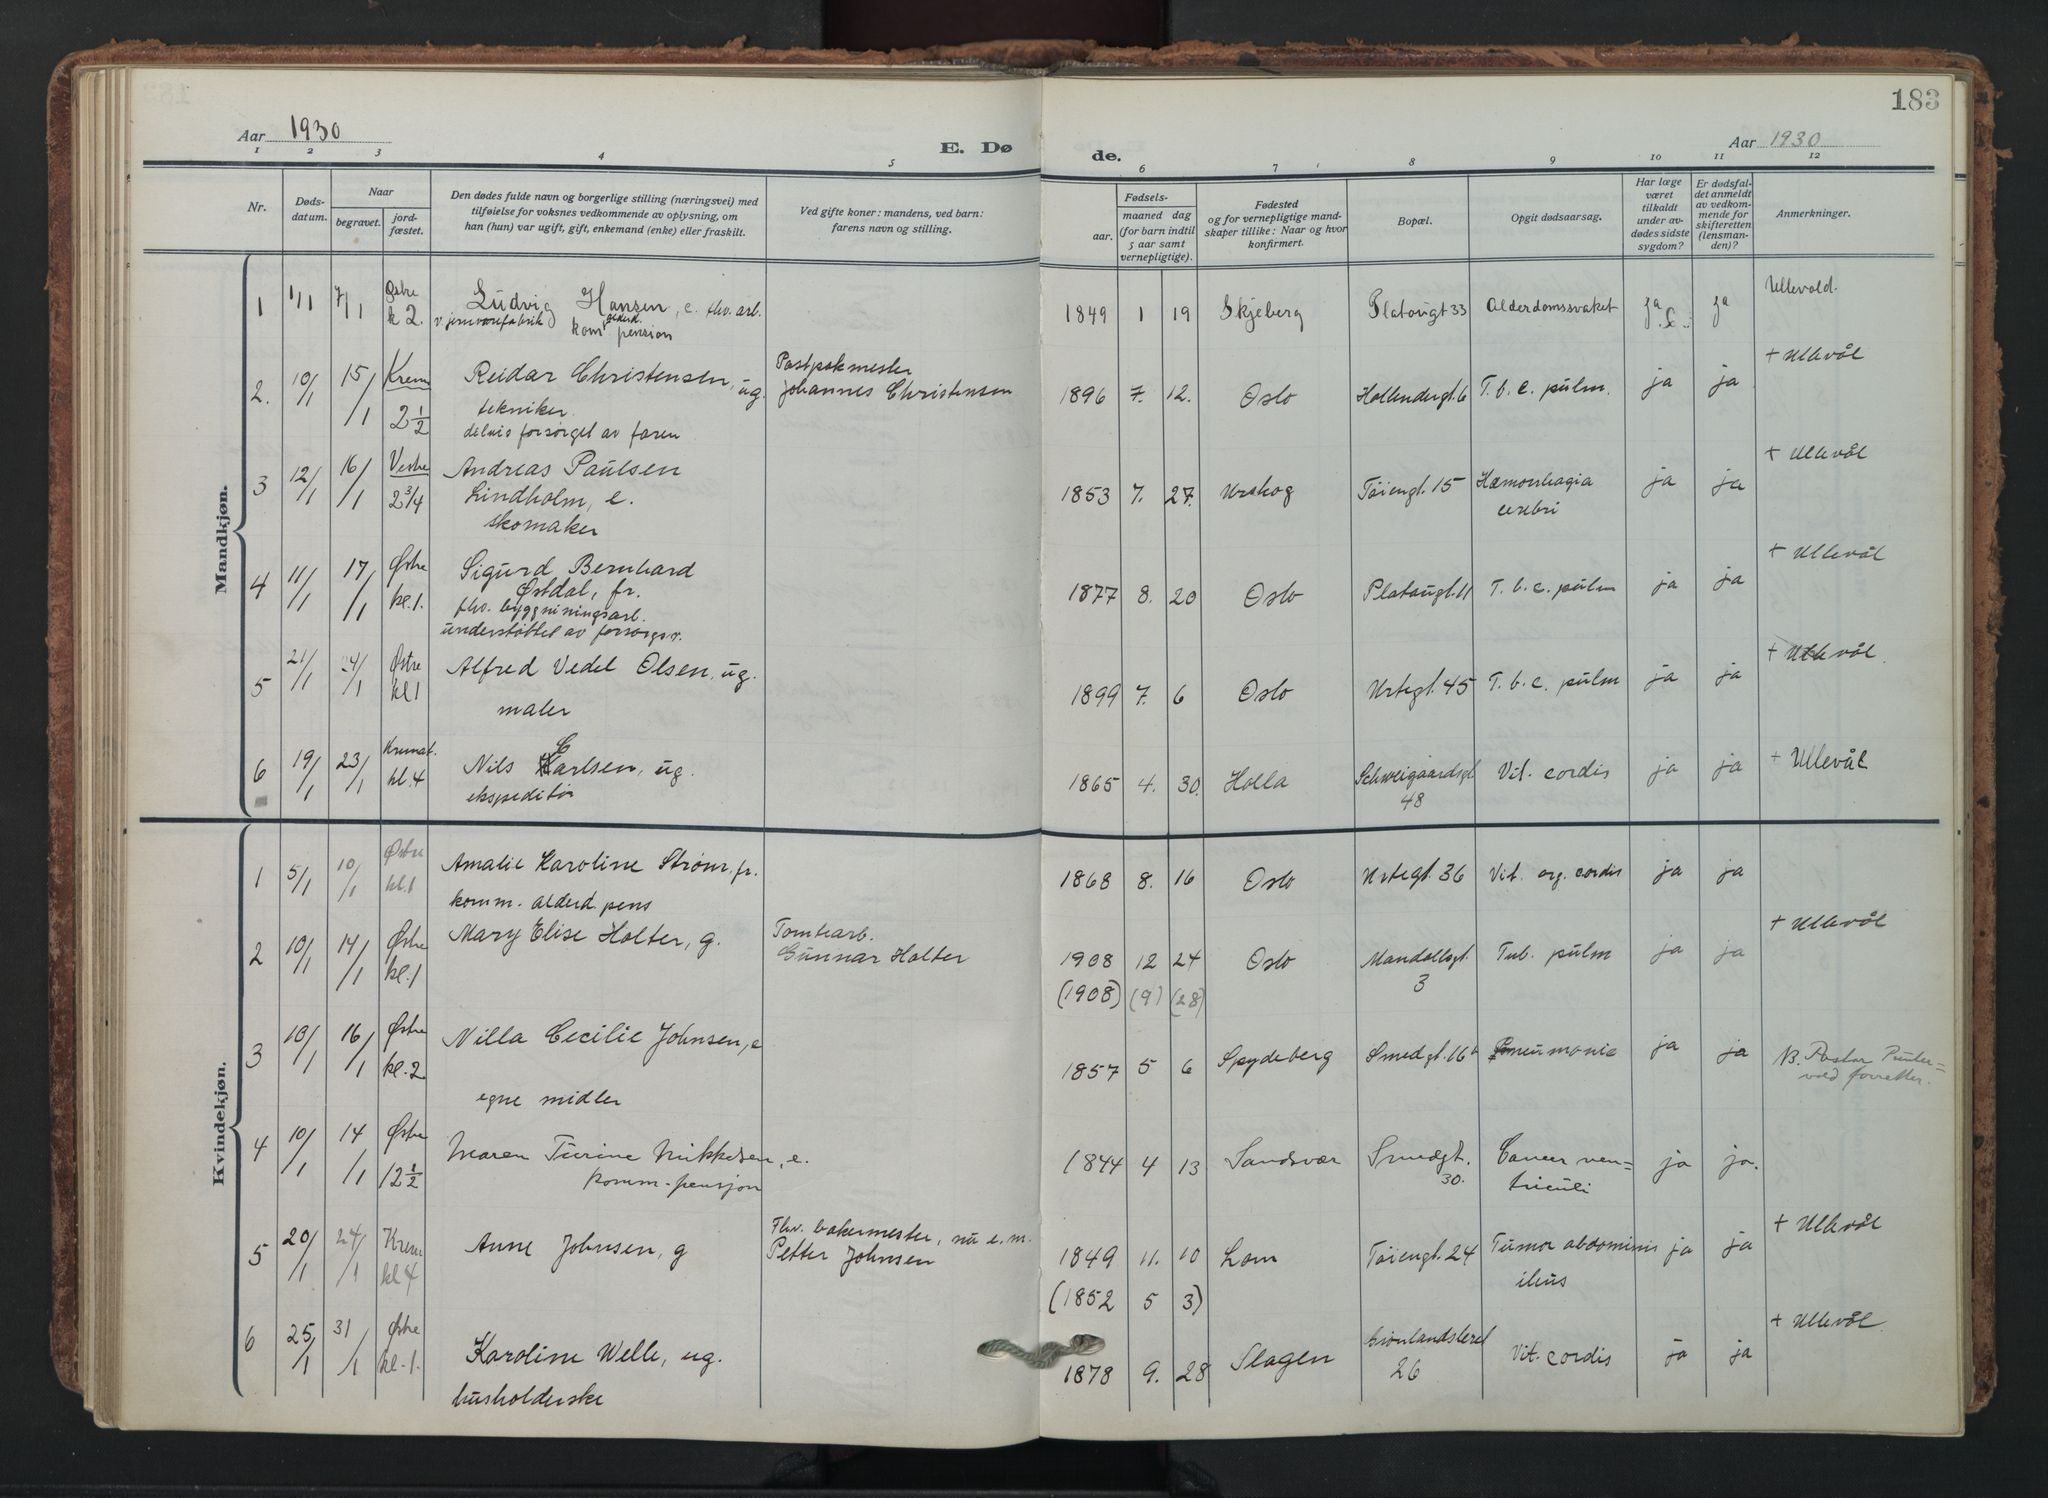 183
Aar 1930
E. Døde.
Aar 1930
1 2 3 4 5 6 7 8 9 10 11 12
Nr.
Døds-
datum.
Naar
begravet.
jord-
fæstet.
Den dødes fulde navn og borgerlige stilling (næringsvei) med
tilføielse for voksnes vedkommende av oplysning, om
han (hun) var ugift, gift, enkemand (enke) eller fraskilt.
Ved gifte koner: mandens, ved barn:
farens navn og stilling.
Fødsels-
aar.
maaned dag
(for barn indtil
5 aar samt
vernepligtige).
Fødested
og for vernepligtige mand-
skaper tillike: Naar og hvor
konfirmert.
Bopæl.
Opgit dødsaarsag.
Har læge
været
tilkaldt
under av-
dødes sidste
sygdom?
Er dødsfal-
det anmeldt
av vedkom-
mende for
skifteretten
(lensman-
den)?
Anmerkninger.
Mandkjøn.
1 1/1 7/1 Østre k 2. Ludvig Hansen, e. fhv. arb.
v. jernvarefabrik
kom. alderd. pension
1849 1 19 Skjeberg Platougt 33 Alderdomssvaket ja ja Ullevold.
2. 10/1 15/1 Krem 2 1/2 Reidar Christensen, ug.
tekniker
delvis forsørget av faren
Postpakmester
Johannes Christensen
1896 7. 12. Oslo Hollendergt. 6 T. b. c. pulm. ja ja + Ullevål
3 12/1 16/1 Vestre 2 3/4 Andreas Paulsen
Lindholm, e.
skomaker
1853 7. 27. Urskog Tøiengt. 15 Hæmorrhagia
cerebri
ja ja + Ullevål
4 11/1 17/1 Østre kl. 1. Sigurd Bernhard
Østdal, fr.
fhv. byggniningsarb.
understøttet av forsorgsv.
1877 8. 20 Oslo Platougt. 11 T. b. c. pulm ja ja + Ullevål
5 21/1 24/1 Østre kl 1 Alfred Vedel Olsen, ug.
maler
1899 7. 6 Oslo Urtegt. 45 T. b. c. pulm ja ja + Ullevål.
6 19/1 23/1 Kremat. kl. 4 Nils Carlsen, ug.
ekspeditør
1865 4. 30. Holla Schweigaardsgt
48
Vit. cordis ja ja + Ullevål
Kvindekjøn.
1 5/1 10/1 Østre kl. 1 Amalie Karoline Strøm, fr.
komm. alderd. pens
1868 8. 16 Oslo Urtegt. 36 Vit. org. cordis ja ja
2 10/1 14/1 Østre kl. 1 Mary Elise Holter, g.
Tomtearb.
Gunnar Holter
1908 12 24 Oslo Mandallsgt.
3
Tub. pulm ja ja + Ullevål
(1908) (9) (28)
3 10/1 16/1 Østre kl. 2 Nilla Cecilie Johnsen, e
egne midler
1857 5 6 Spydeberg Smedgt. 16 b Pneumonie ja ja NB. Pastor Pinter=
vold forretter.
4 10/1 14/1 Østre 12 1/2 Maren Turine Mikkelsen, e.
komm. pensjon
1844 4 13 Sandsvær Smedgt.
30.
Cancer ven=
triculi
ja ja.
5 20/1 24/1 Krem kl 4 Anne Johnsen, g
Fhv. bakermester, nu e. m.
Petter Johnsen
1849 11. 10 Lom Tøiengt. 24 Tumor abdominis
ileus
ja ja + Ullevål
(1852 5 3)
6 25/1 31/1 Østre kl. 1. Karoline Welle, ug.
husholderske
1878 9. 28 Slagen Grønlandsleret
26
Vit. cordis ja ja + Ullevål.